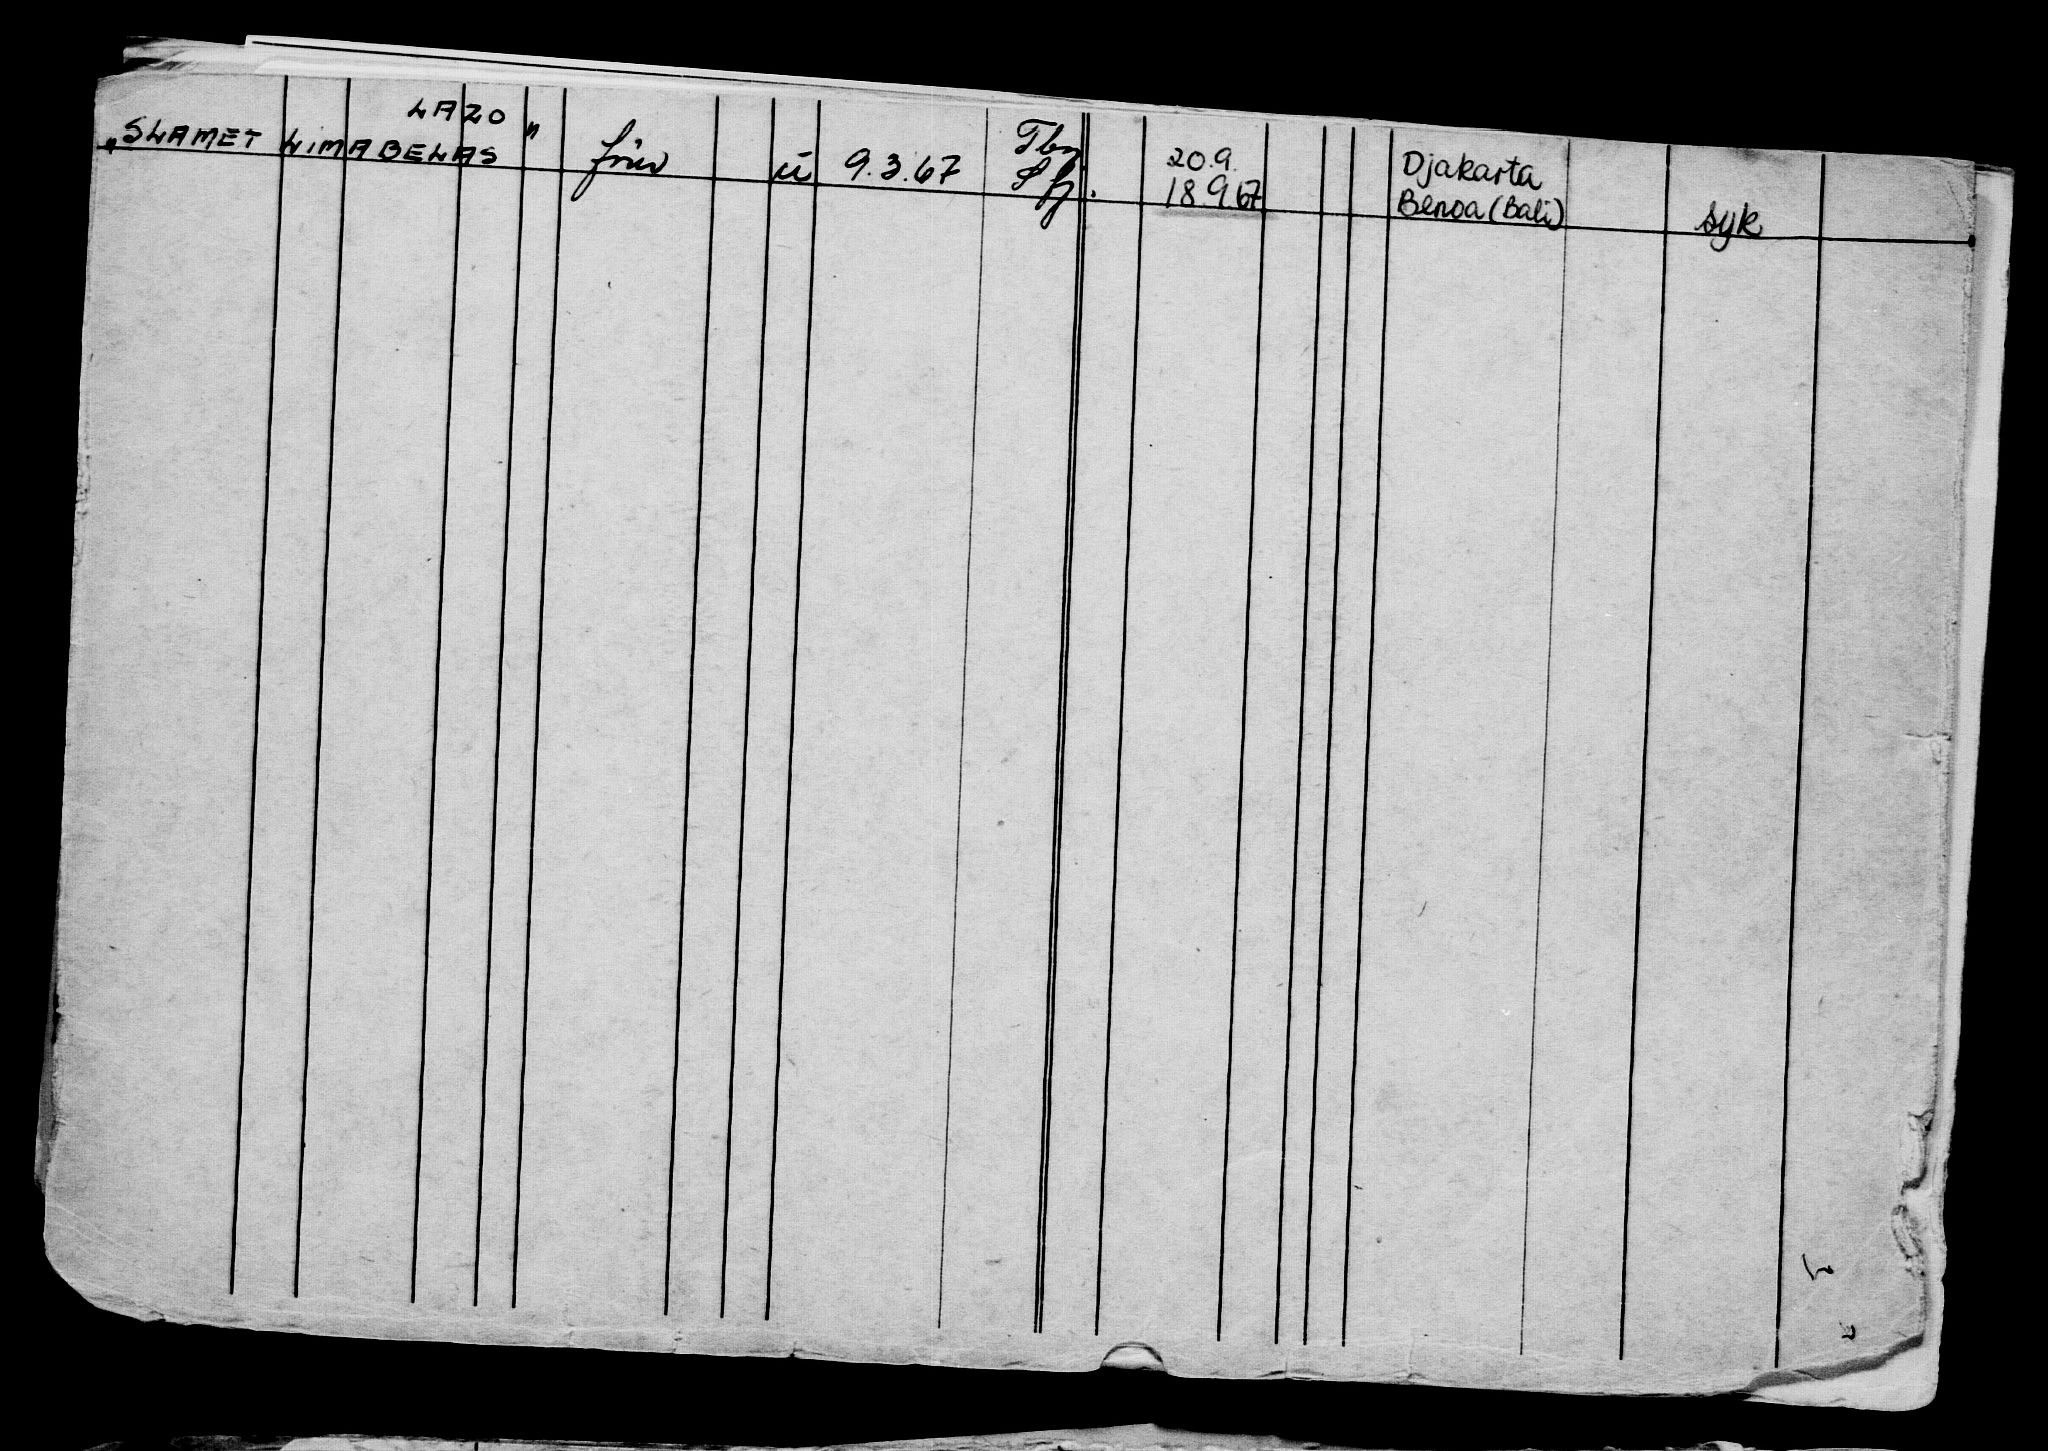 LAZO
„SLAMET LIMABELAS"
u 9.3.67
Tbg
20.9.
18.9.67
Djakarta
Benoa (Bali)
syk